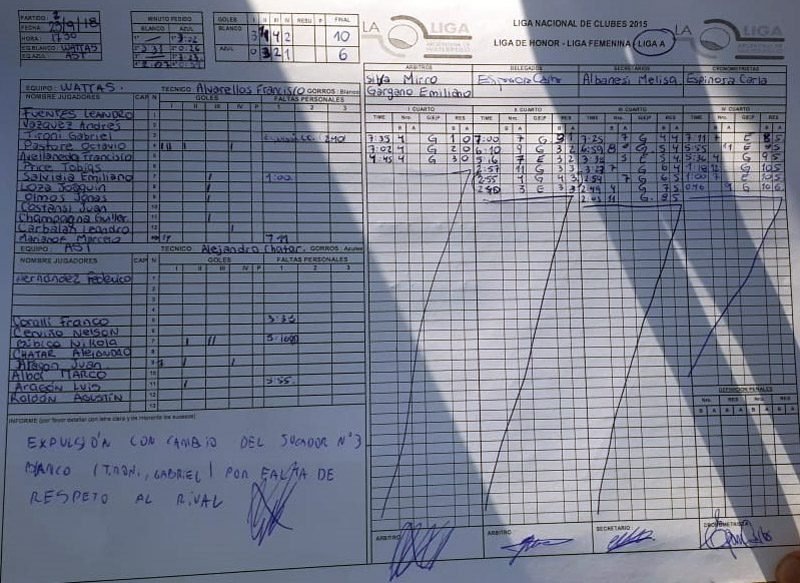 PARTIDO: 2
FECHA: 23/9/18
HORA: 17:30
EQ BLANCO: WATTAS
EQ AZUL: AST
MINUTO PEDIDO
BLANCO AZUL
GOLES I II III IV RESU P FINAL
BLANCO 3 1 4 2 10
AZUL 0 3 2 1 6
LA LIGA
LIGA NACIONAL DE CLUBES 2015
LIGA DE HONOR - LIGA FEMENINA - LIGA A
LA LIGA
ARBITROS DELEGADOS SECRETARIOS CRONOMETRISTAS
Silva Mirco Espinosa Carla Albanesi Melisa Espinosa Carla
Gargano Emiliano
EQUIPO: WATTAS. TECNICO Alvarellos Francisco GORROS: Blanco
NOMBRE JUGADORES CAP N GOLES FALTAS PERSONALES
I II III IV P 1 2 3
FUENTES LEANDRO 1
Vazquez Andres 2
Tironi Gabriel 3
Pastore Octavio 4
Avellaneda Francisco 5
Price Tobias 6
Salvidia Emiliano 7 1:00
Loza Joaquin 8
Olmos Jonas 9
Costansi Juan 10
Champagna Guiller 11
Carballal Leandro 12
Marianof Marcelo 7 11
EQUIPO: AST TECNICO Alejandro Chatar. GORROS: Azules
NOMBRE JUGADORES CAP N GOLES FALTAS PERSONALES
I II III IV P 1 2 3
Hernandez Federico 1
2
3
4
Coralli Franco 5
Cerviño Nelson 6
Bibico Nikola 7
CHATAR ALEJANDRO 8
Aragon Juan 9
Alba MARCO 10
Aragon Luis 11 5:55
Roldán Agustín 12
13
I CUARTO II CUARTO III CUARTO IV CUARTO
TIME Nro. GE/P RES TIME Nro. GE/P RES TIME Nro. GE/P RES TIME Nro. GE/P RES
B A B A B A B A
7:35 4 G 1 0 7:00 7 G 3 1 7:25 7 G 4 4 7:11 E 8 5
7:02 4 G 2 0 6:10 9 G 3 2 6:59 8 G 5 4 5:55 11 E 8 5
4:45 4 G 3 0 5:16 7 E 3 2 3:38 5 E 5 4 5:36 4 G 9 5
2:57 11 G 3 3 3:27 7 G 6 4 1:18 12 G 10 5
2:55 4 G 4 3 2:59 7 G 6 5 1:00 7 E 10 5
2:40 3 E 3 3 2:49 4 G 7 5 0:46 9 G 10 6
2:43 11 G 8 5
DEFINICION PENALES
Nro. RES Nro. RES
B A B A B A B A
INFORME (por favor detallar con letra clara y de imprenta los sucesos)
EXPULSIÓN CON CAMBIO DEL JUGADOR Nº3
BLANCO (TIRONI, GABRIEL) POR FALTA DE
RESPETO AL RIVAL
ARBITRO: ARBITRO: SECRETARIO: CRONOMETRISTA: